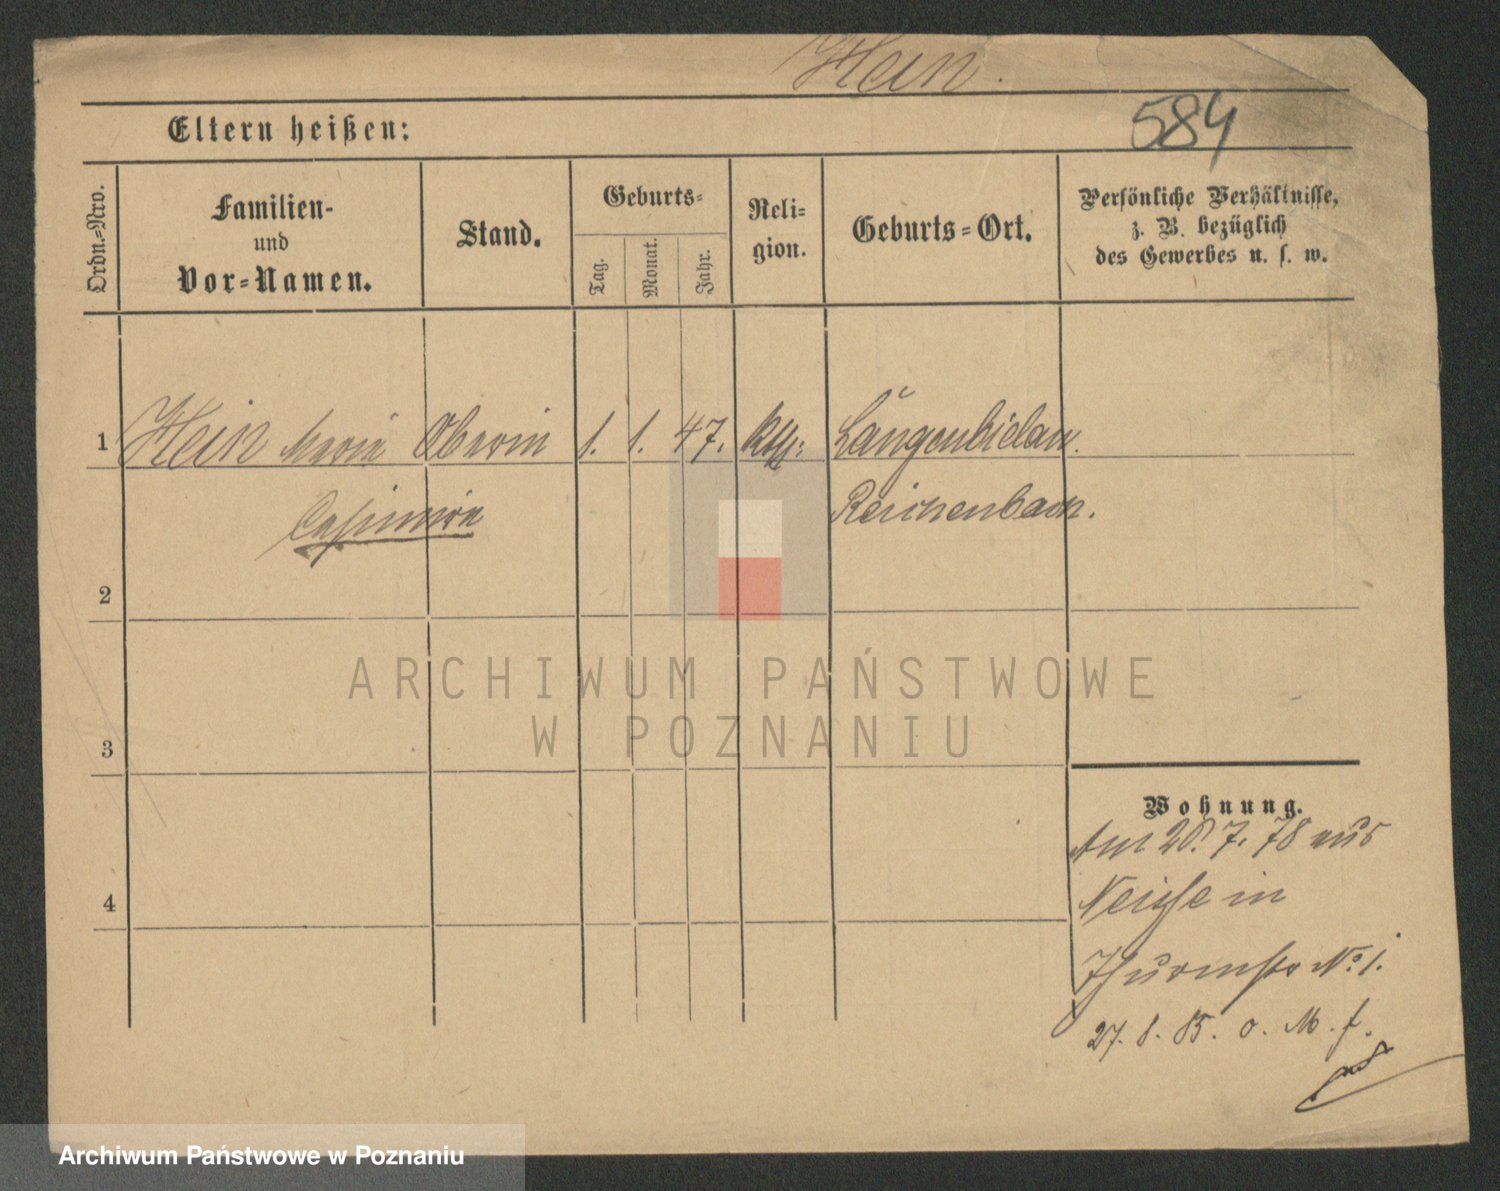 Hein.
584
Eltern heißen:
Ordn.=Nro.
Familien-
und
Vor=Namen.
Stand.
Geburts=
Tag.
Monat.
Jahr.
Reli=
gion.
Geburts=Ort.
Persönliche Verhältnisse,
z. B. bezüglich
des Gewerbes u. s. w.
1 Hein Maria Oberin 1. 1. 47. kth: Langenbielau.
Casimira Reichenbach.
2
ARCHIWUM PAŃSTWOWE
W POZNANIU
3
Wohnung.
Am 28. 7. 78 aus
4
Neisse in
Thurmstr No. 1.
27. 8. 85. o. M. f.
Archiwum Państwowe w Poznaniu